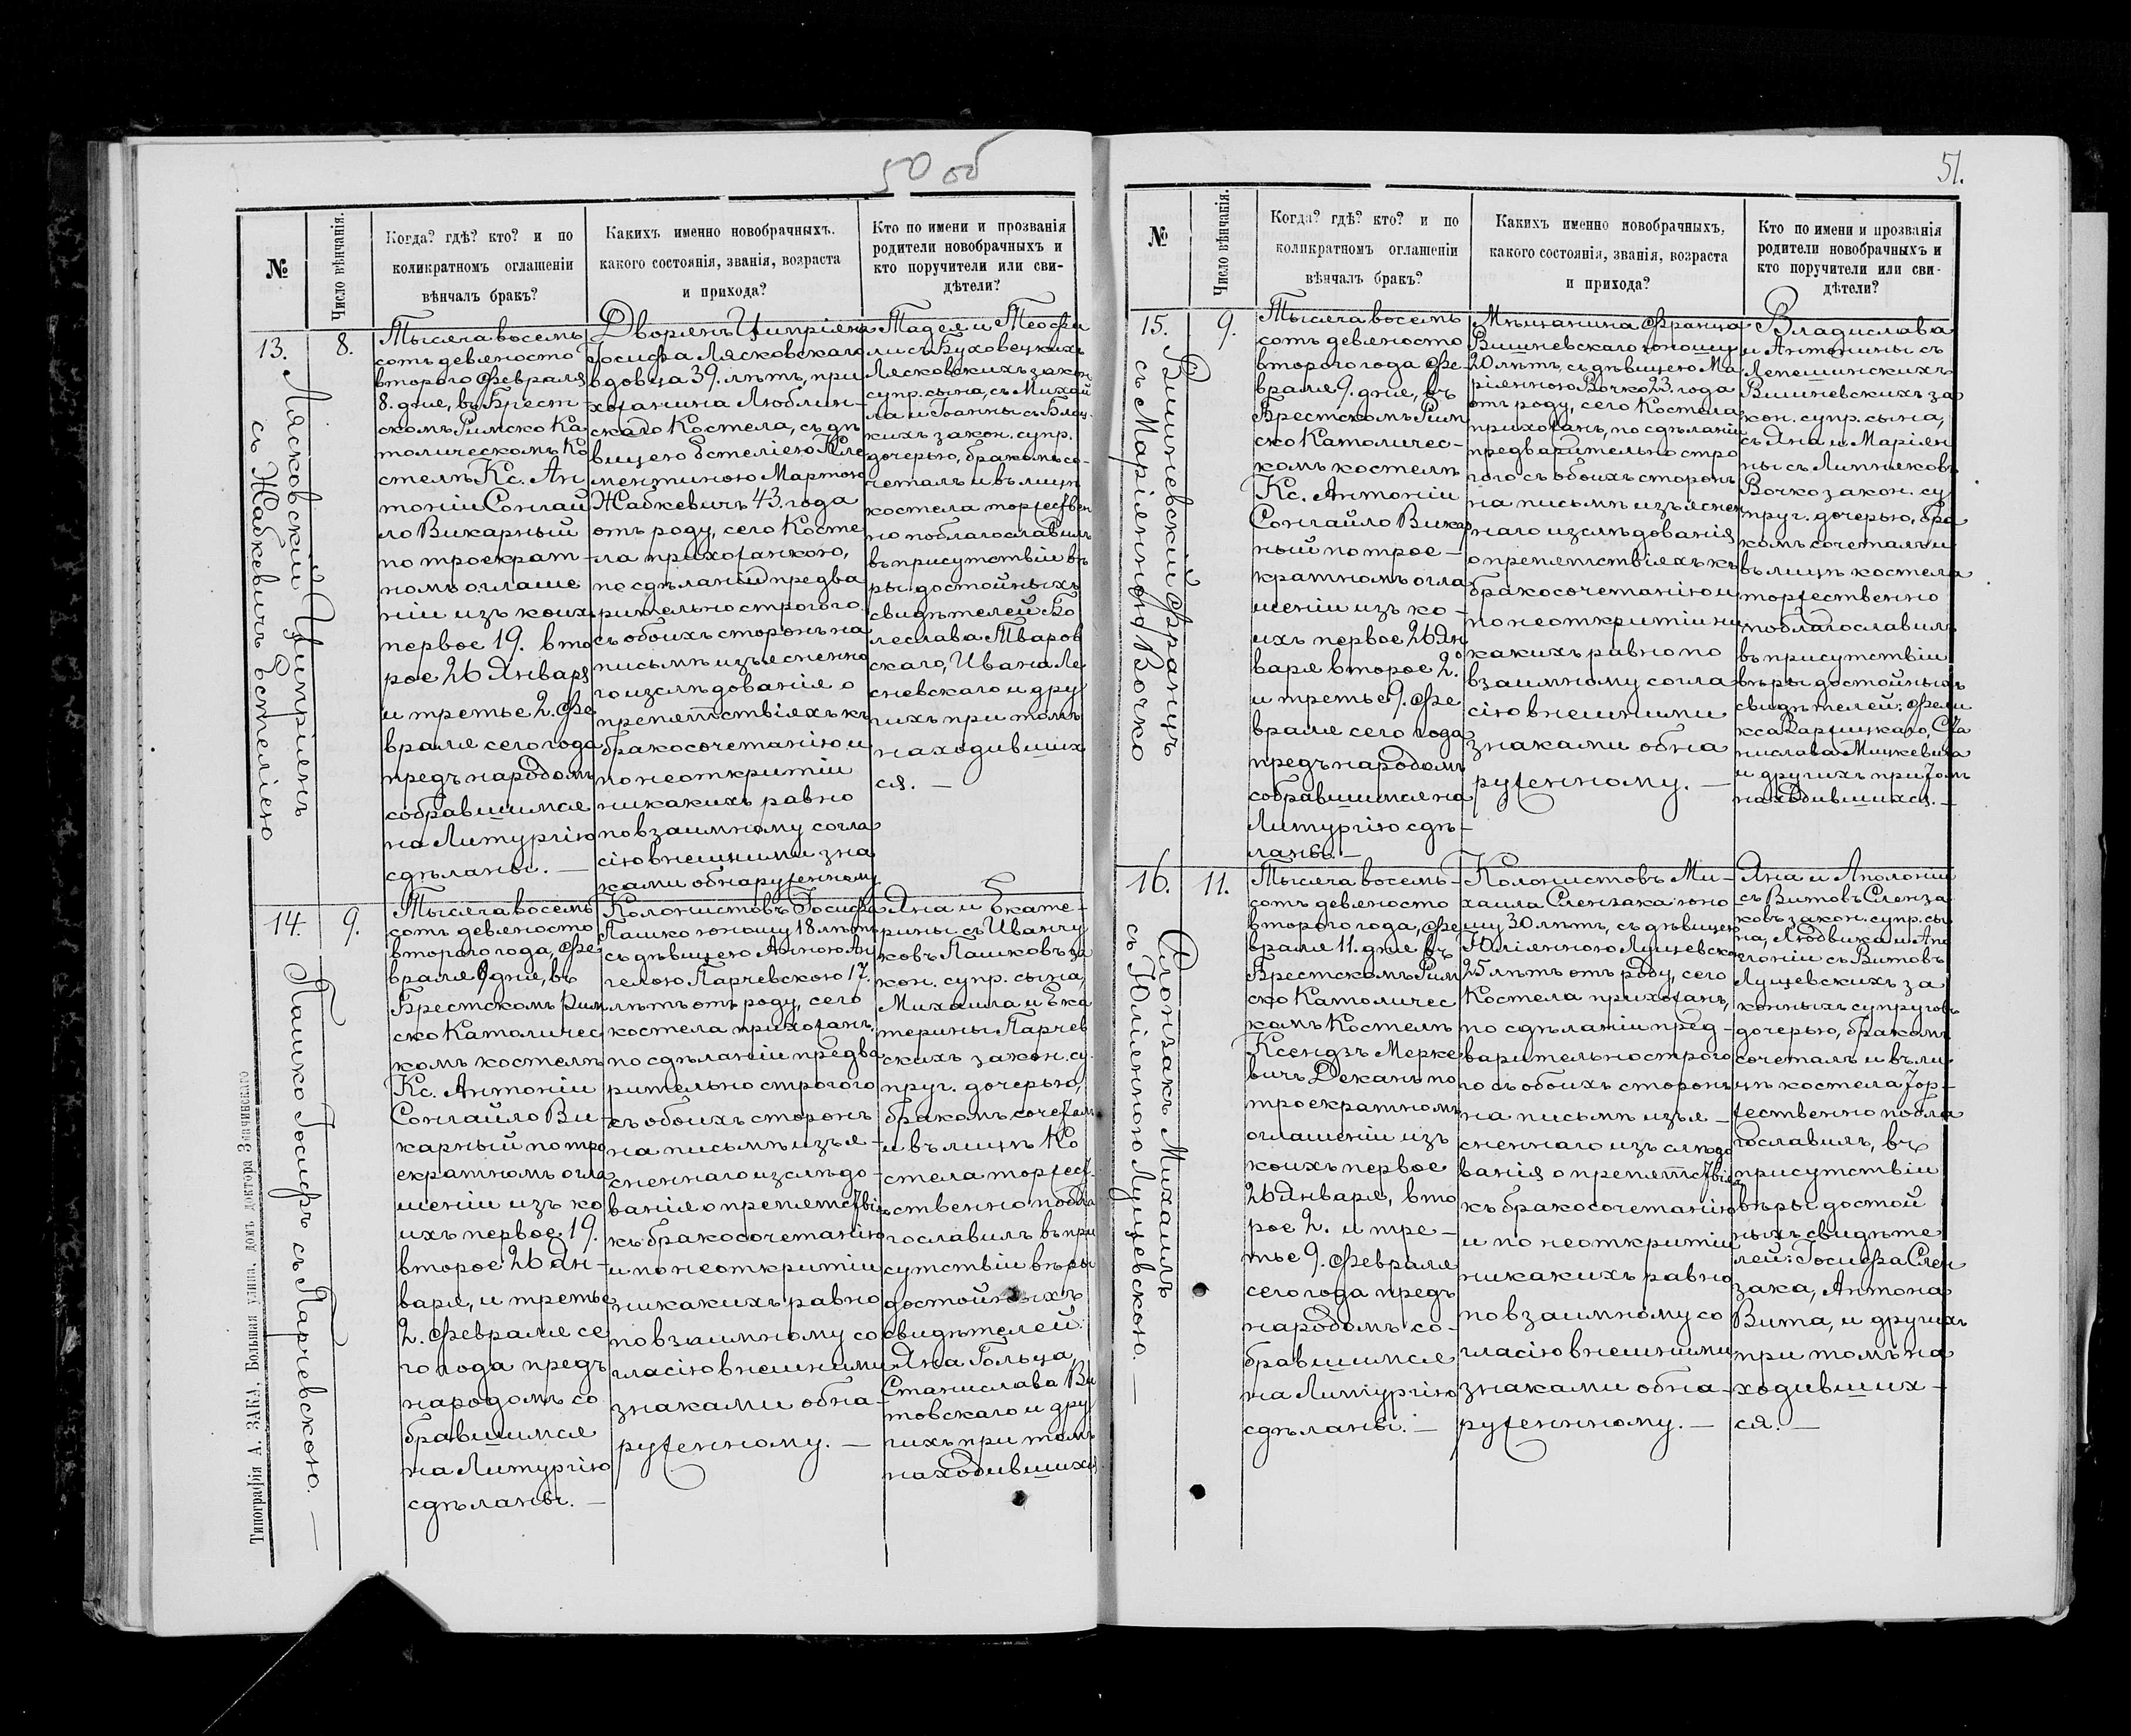 50 об
№
Число вѣнчанія.
Когда? гдѣ? кто? и по
коликратномъ оглашеніи
вѣнчалъ бракъ?
Какихъ именно новобрачныхъ.
какого состоянія, званія, возраста
и прихода?
Кто по имени и прозванія
родители новобрачныхъ и
кто поручители или сви-
дѣтели?
13.
8.
Лясковскій Ципріянъ
съ Жабкевичъ Естеліею
Тысяча восемь
сотъ девяносто
второго Февраля
8. дня, въ Брест-
скомъ Римско Ка
толическомъ Ко
стелѣ Кс. Ан
тоній Сонгай
ло Викарный
по троекрат-
номъ оглаше
ніи изъ коихъ
первое 19. вто
рое 26 Января
и третье 2. Фе
враля сего года
предъ народомъ
собравшимся
на Литургію
сдѣланы. —
Дворянъ Ципріяна
Іосифа Лясковскаго
вдовца 39. лѣтъ, при
хожанина Люблин-
скаго Костела, съ дѣ
вицею Естеліею Кле
ментиною Мартою
Жабкевичъ 43. года
отъ роду, сего Косте
ла прихожанкою,
по сдѣланіи предва
рительно строгого
съ обоихъ сторонъ на
письмѣ изъясненно
го изслѣдованія о
препятствіяхъ къ
бракосочетанію и
по неоткрытіи
никакихъ равно
по взаимному согла
сію внешними зна
ками обнаруженному
Тадея и Теофи
ли съ Буховецкихъ
Лясковскихъ закон.
супр. сына, съ Михай
ла и Іоанны съ
кихъ закон. супр.
дочерью, бракомъ со-
четалъ и въ лицѣ
костела торжествен
но поблагославилъ
въ присутствіи вѣ
ры достойныхъ
свидѣтелей Бо
леслава Тваров
скаго, Ивана Ле
сневскаго и дру
гихъ при томъ
находивших
ся. —
14.
9.
Пашко Іосифъ съ Парчевскою. —
Тысяча восемь
сотъ девяносто
второго года, Фе
враля 9 дня, въ
Брестскомъ Рим
ско Католичес
комъ костелѣ
Кс. Антоній
Сонгайло Ви-
карный по тро
екратномъ огла
шеніи изъ ко
ихъ первое 19.
второе 26 Ян-
варя, и третье
2. Февраля се
го года предъ
народомъ со
бравшимся
на Литургію
сдѣланы. —
Колонистовъ Іосифа
Пашко юношу 18 лѣтъ
съ дѣвицею Анною Ан
гелою Парчевскою 17.
лѣтъ отъ роду, сего
костела прихожанъ,
по сдѣланіи предва
рительно строгого
съ обоихъ сторонъ
на письмѣ изъя-
сненнаго изслѣдо-
ванія о препятствія
къ бракосочетанію
и по неоткрытіи
никакихъ равно
по взаимному со
гласію внешними
знаками обна-
руженному. —
Яна и Екате-
рины съ Иванчу
ковъ Пашковъ за
кон. супр. сына,
Михаила и Ека
терины Парчев
скихъ закон. су.
пруг. дочерью,
бракомъ сочеталъ
и въ лицѣ Ко
стела торжест.
ственно побла
гославилъ въ при
сутствіи вѣры
достойныхъ
свидѣтелей:
Яна Гольца,
Станислава Ви
товскаго и дру
гихъ при томъ
находившихся
Типографія А. ЗАКА, Большая улица, домъ доктора Злачинскаго
51.
№
Число вѣнчанія.
Когда? гдѣ? кто? и по
коликратномъ оглашеніи
вѣнчалъ бракъ?
Какихъ именно новобрачныхъ,
какого состоянія, званія, возраста
и прихода?
Кто по имени и прозванія
родители новобрачныхъ и
кто поручители или сви-
дѣтели?
15.
9.
Вишневскій Францъ
съ Маріянною Вочко
Тысяча восемь
сотъ девяносто
второго года Фе-
враля 9. дня, въ
Брестскомъ Рим
ско Католичес-
комъ костелѣ
Кс. Антоній
Сонгайло Викар
ный по трое-
кратномъ огла
шеніи изъ ко-
ихъ первое 26 Ян
варя второе 2.
и третье 9. Фе
враля сего года
предъ народомъ
собравшимся на
Литургію сдѣ-
ланы. —
Мѣщанина Франца
Вишневскаго юношу
20 лѣтъ, съ дѣвицею Ма-
ріянною Вочко 23. года
отъ роду, сего Костела
прихожанъ, по сдѣланіи
предварительно стро
гого съ обоихъ сторонъ
на письмѣ изъяснен
наго изслѣдованія
о препятствіяхъ къ
бракосочетанію и
по неоткрытіи ни
какихъ равно по
взаимному согла-
сію внешними
знаками обна
руженному. —
Владислава
и Антонины съ
Лепешинскихъ
Вишневскихъ за
кон. супр. сына,
съ Яна и Маріян
ны съ Липняковъ
Вочко закон. су
пруг. дочерью, бра
комъ сочеталъ и
въ лицѣ костела
торжественно
поблагославилъ
въ присутствіи
вѣры достойныхъ
свидѣтелей: Фели
кса Варжицкаго, Ста
нислава Мицкевича
и другихъ при томъ
находившихся. —
16.
11.
Слонзакъ Михаилъ
съ Юліянною Лущевскою. —
Тысяча восемь-
сотъ девяносто
второго года, Фе
враля 11. дня въ
Брестскомъ Рим
ско Католичес
комъ Костелѣ
Ксендзъ Мерке
вичъ Деканъ по
троекратномъ
оглашеніи изъ
коихъ первое
26 Января, вто
рое 2. и тре-
тье 9. Февраля
сего года предъ
народомъ со-
бравшимся
на Литургію
сдѣланы. —
Колонистовъ Ми-
хаила Слензака юно
шу 30 лѣтъ, съ дѣвицею
Юліянною Лущевскою
25 лѣтъ отъ роду, сего
Костела прихожанъ,
по сдѣланіи пред-
варительно строго
го съ обоихъ сторонъ
на письмѣ изъя-
сненнаго изъ слѣдо
ванія о препятствія
къ бракосочетанію
и по неоткрытіи
никакихъ равно
по взаимному со
гласію внешними
знаками обна-
руженному. —
Яна и Аполоніи
съ Витовъ Сленза
ковъ закон. супр. сы
на, Людвика и Апо
лоніи съ Витовъ
Лущевскихъ за
конныхъ супруговъ
дочерью, бракомъ
сочеталъ и въ ли
цѣ костела тор-
жественно побла
гославилъ, въ
присутствіи
вѣры достой
ныхъ свидѣте
лей: Іосифа Слен
зака, Антона
Вита, и другихъ
при томъ на
ходивших-
ся. —